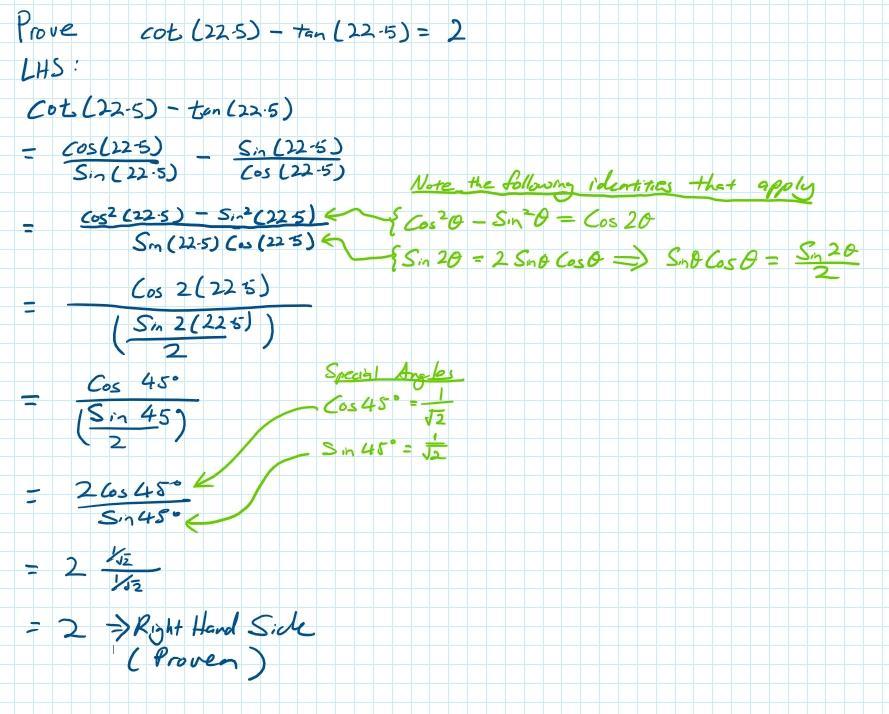 Prove cot (22.5) - tan (22.5) = 2
LHS :
Cot (22.5) - tan (22.5)
= cos(22.5)/Sin(22.5) - Sin(22.5)/Cos(22.5)
Note the following identities that apply
= cos²(22.5) - Sin²(22.5)/Sin(22.5) Cos(22.5)
{ Cos²θ - Sin²θ = Cos 2θ
{ Sin 2θ = 2 Sinθ Cosθ ⟹ Sinθ Cosθ = Sin 2θ/2
= Cos 2(22.5)/(Sin 2(22.5)/2)
= Cos 45°/(Sin 45/2)
Special Angles
Cos 45° = 1/√2
Sin 45° = 1/√2
= 2 Cos 45°/Sin 45°
= 2 1/√2/1/√2
= 2 ⇒ Right Hand Side
(Proven)